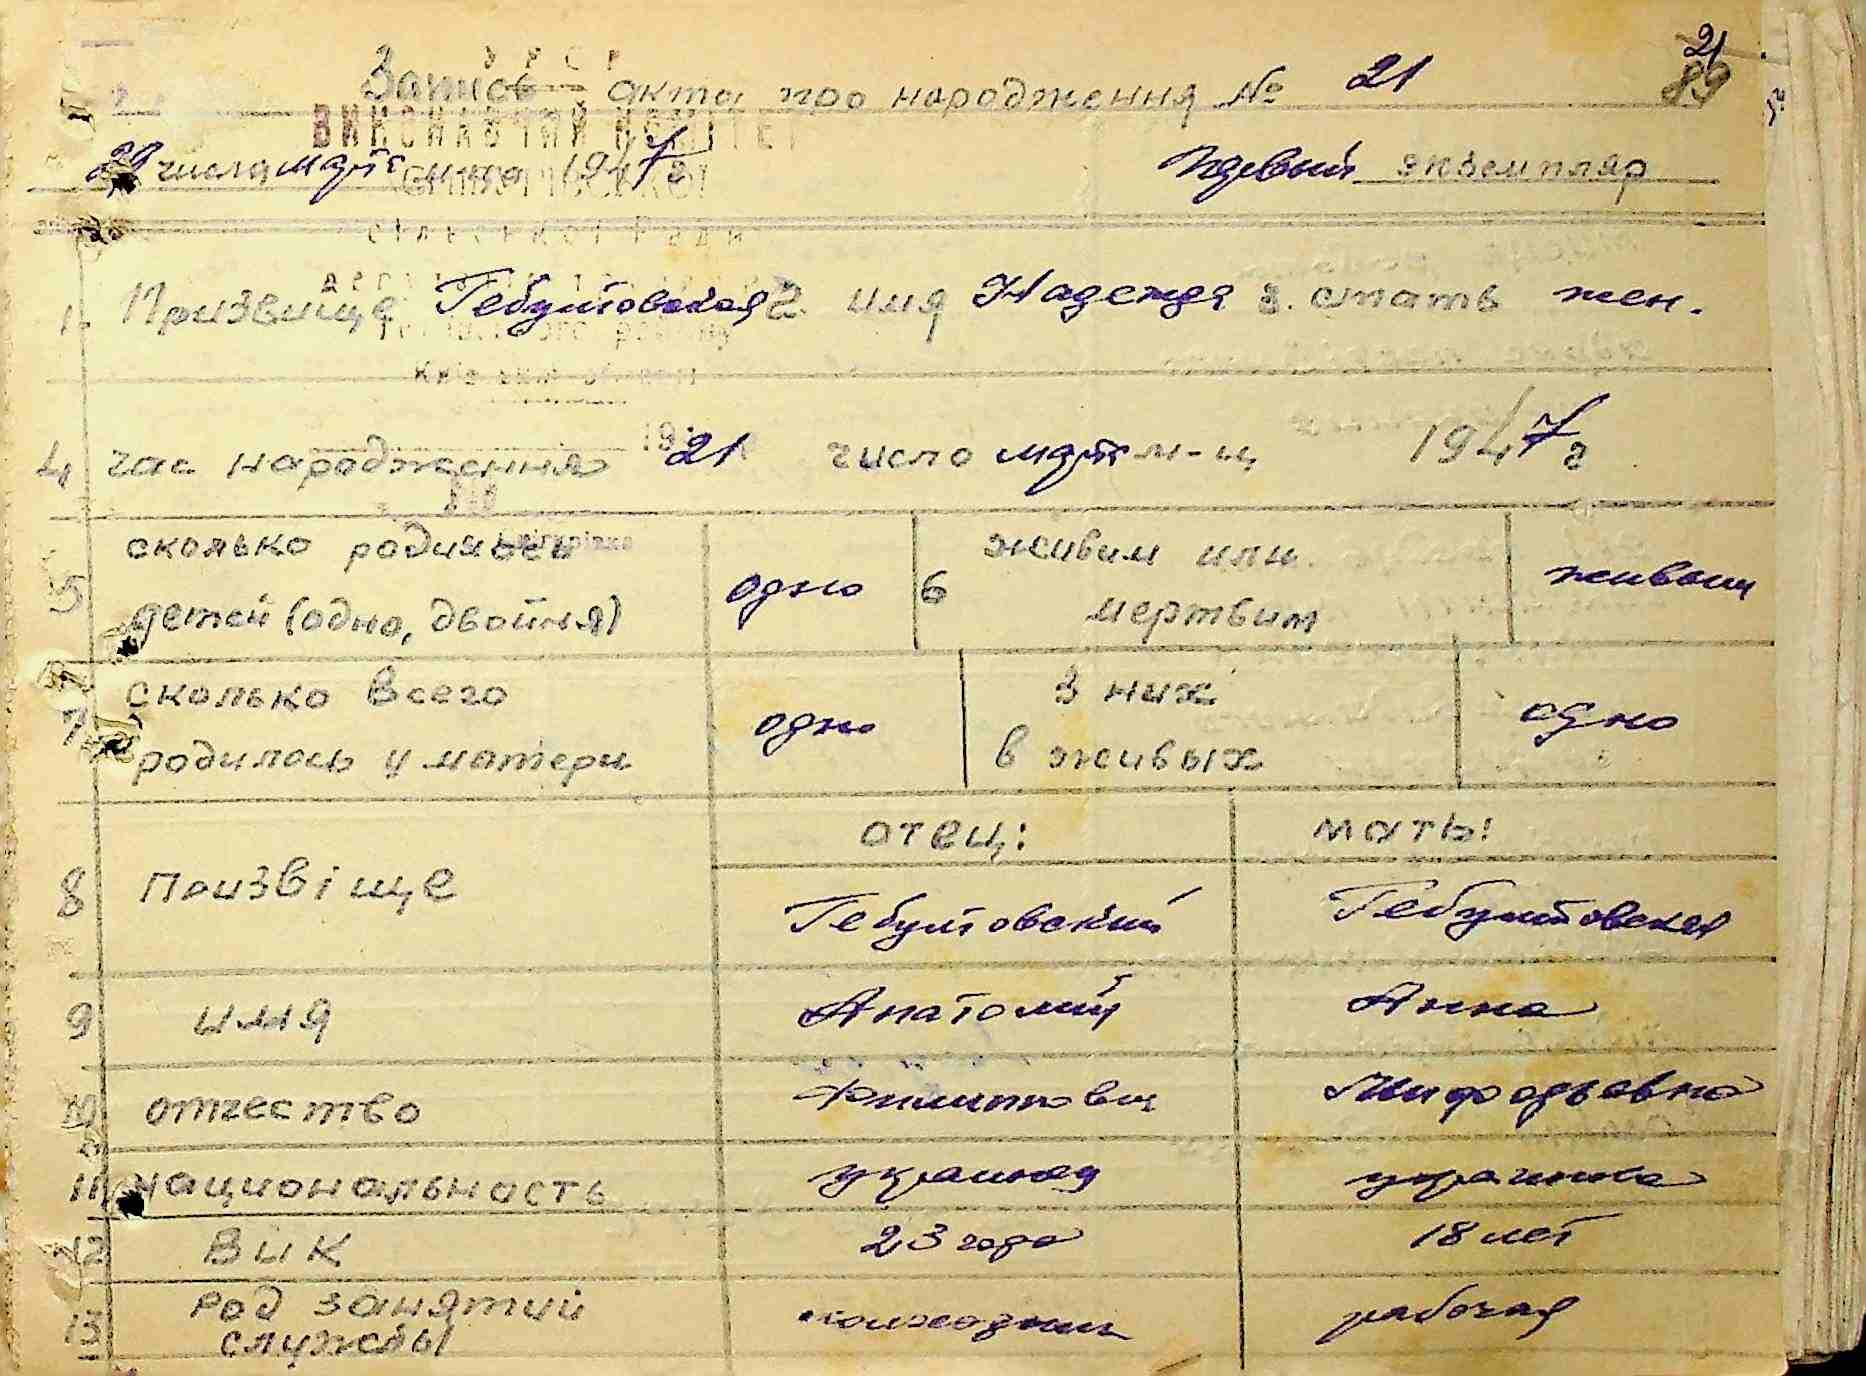 21
Запис акта про народження № 21 89
У Р С Р
ВИКОНАВЧИЙ КОМІТЕТ
29 числа март м-ца 1947 г Первый экземпляр
сільської Ради
1. Призвище Гебултовская 2. имя Надежда 3. стать жен.
району
Київської області
4 час народження 21 число март м-ц 1947 г
5 сколько родилось детей (одно, двойня) одно 6 живим или мертвим живым
7 сколько всего родилось у матери одно З них в живых одно
отец: мать:
8 Призвіще Гебултовский Гебултовская
9 имя Анатолий Анна
10 отчество Филиппович Мифодьевна
11 национальность украинец украинка
12 Вик 23 года 18 лет
13 Род занятий службы колхозник рабочая